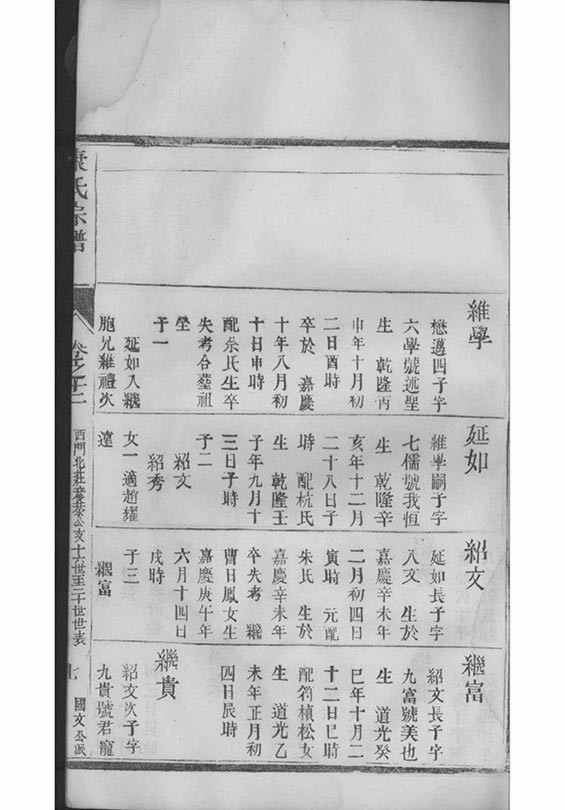 維學
懋邁四子字
六學號述聖
生 乾隆丙
申年十月初
二日酉時
卒於 嘉慶
十年八月初
十日申時
配余氏生卒
失考合塟祖
塋
于一
延如入繼
胞兄維禮次
延如
維學嗣子字
七儒號我恒
生 乾隆辛
亥年十二月
二十八日子
時 配杭氏
生 乾隆壬
子年九月十
三日子時
于二
紹文
紹秀
女一適趙耀
紹文
延如長子字
八文 生於
嘉慶辛未年
二月初四日
寅時 元配
朱氏 生於
嘉慶辛未年
卒失考 繼
曹日鳳女生
嘉慶庚午年
六月十四日
戌時
于三
繼富
繼富
紹文長子字
九富號美也
生 道光癸
巳年十月二
十二日巳時
配符楨松女
生 道光乙
未年正月初
四日辰時
繼貴
紹文次子字
九貴號君寵
氏宗譜
卷之十二
西門北莊 公支十六世至二十世世表
七
國文公派